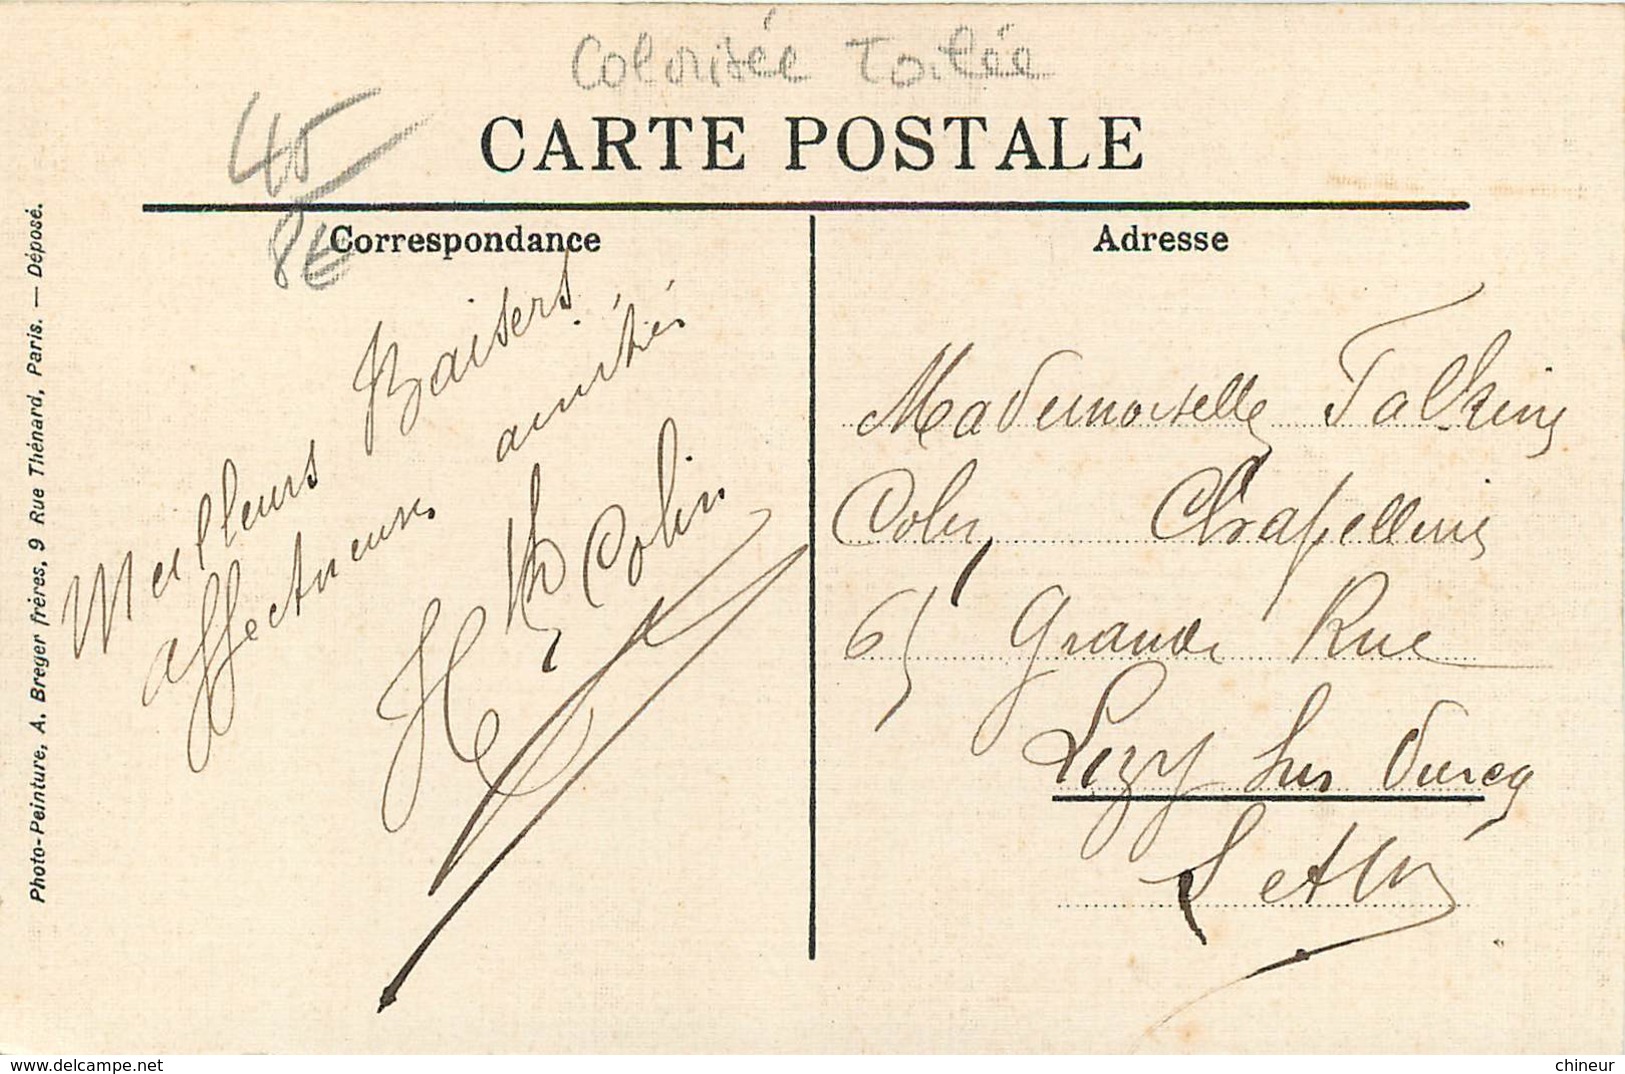 Colorisée Toilée
45
8€
CARTE POSTALE
Correspondance
Adresse
Meilleurs Baisers
affectueuses amitiés
H Colin
Mademoiselle
Chez
65 Grande Rue
Lizy Sur Ourcq
S et M
Photo-Peinture, A. Breger frères, 9 Rue Thénard, Paris. — Déposé.
https://www.delcampe.net
chineur